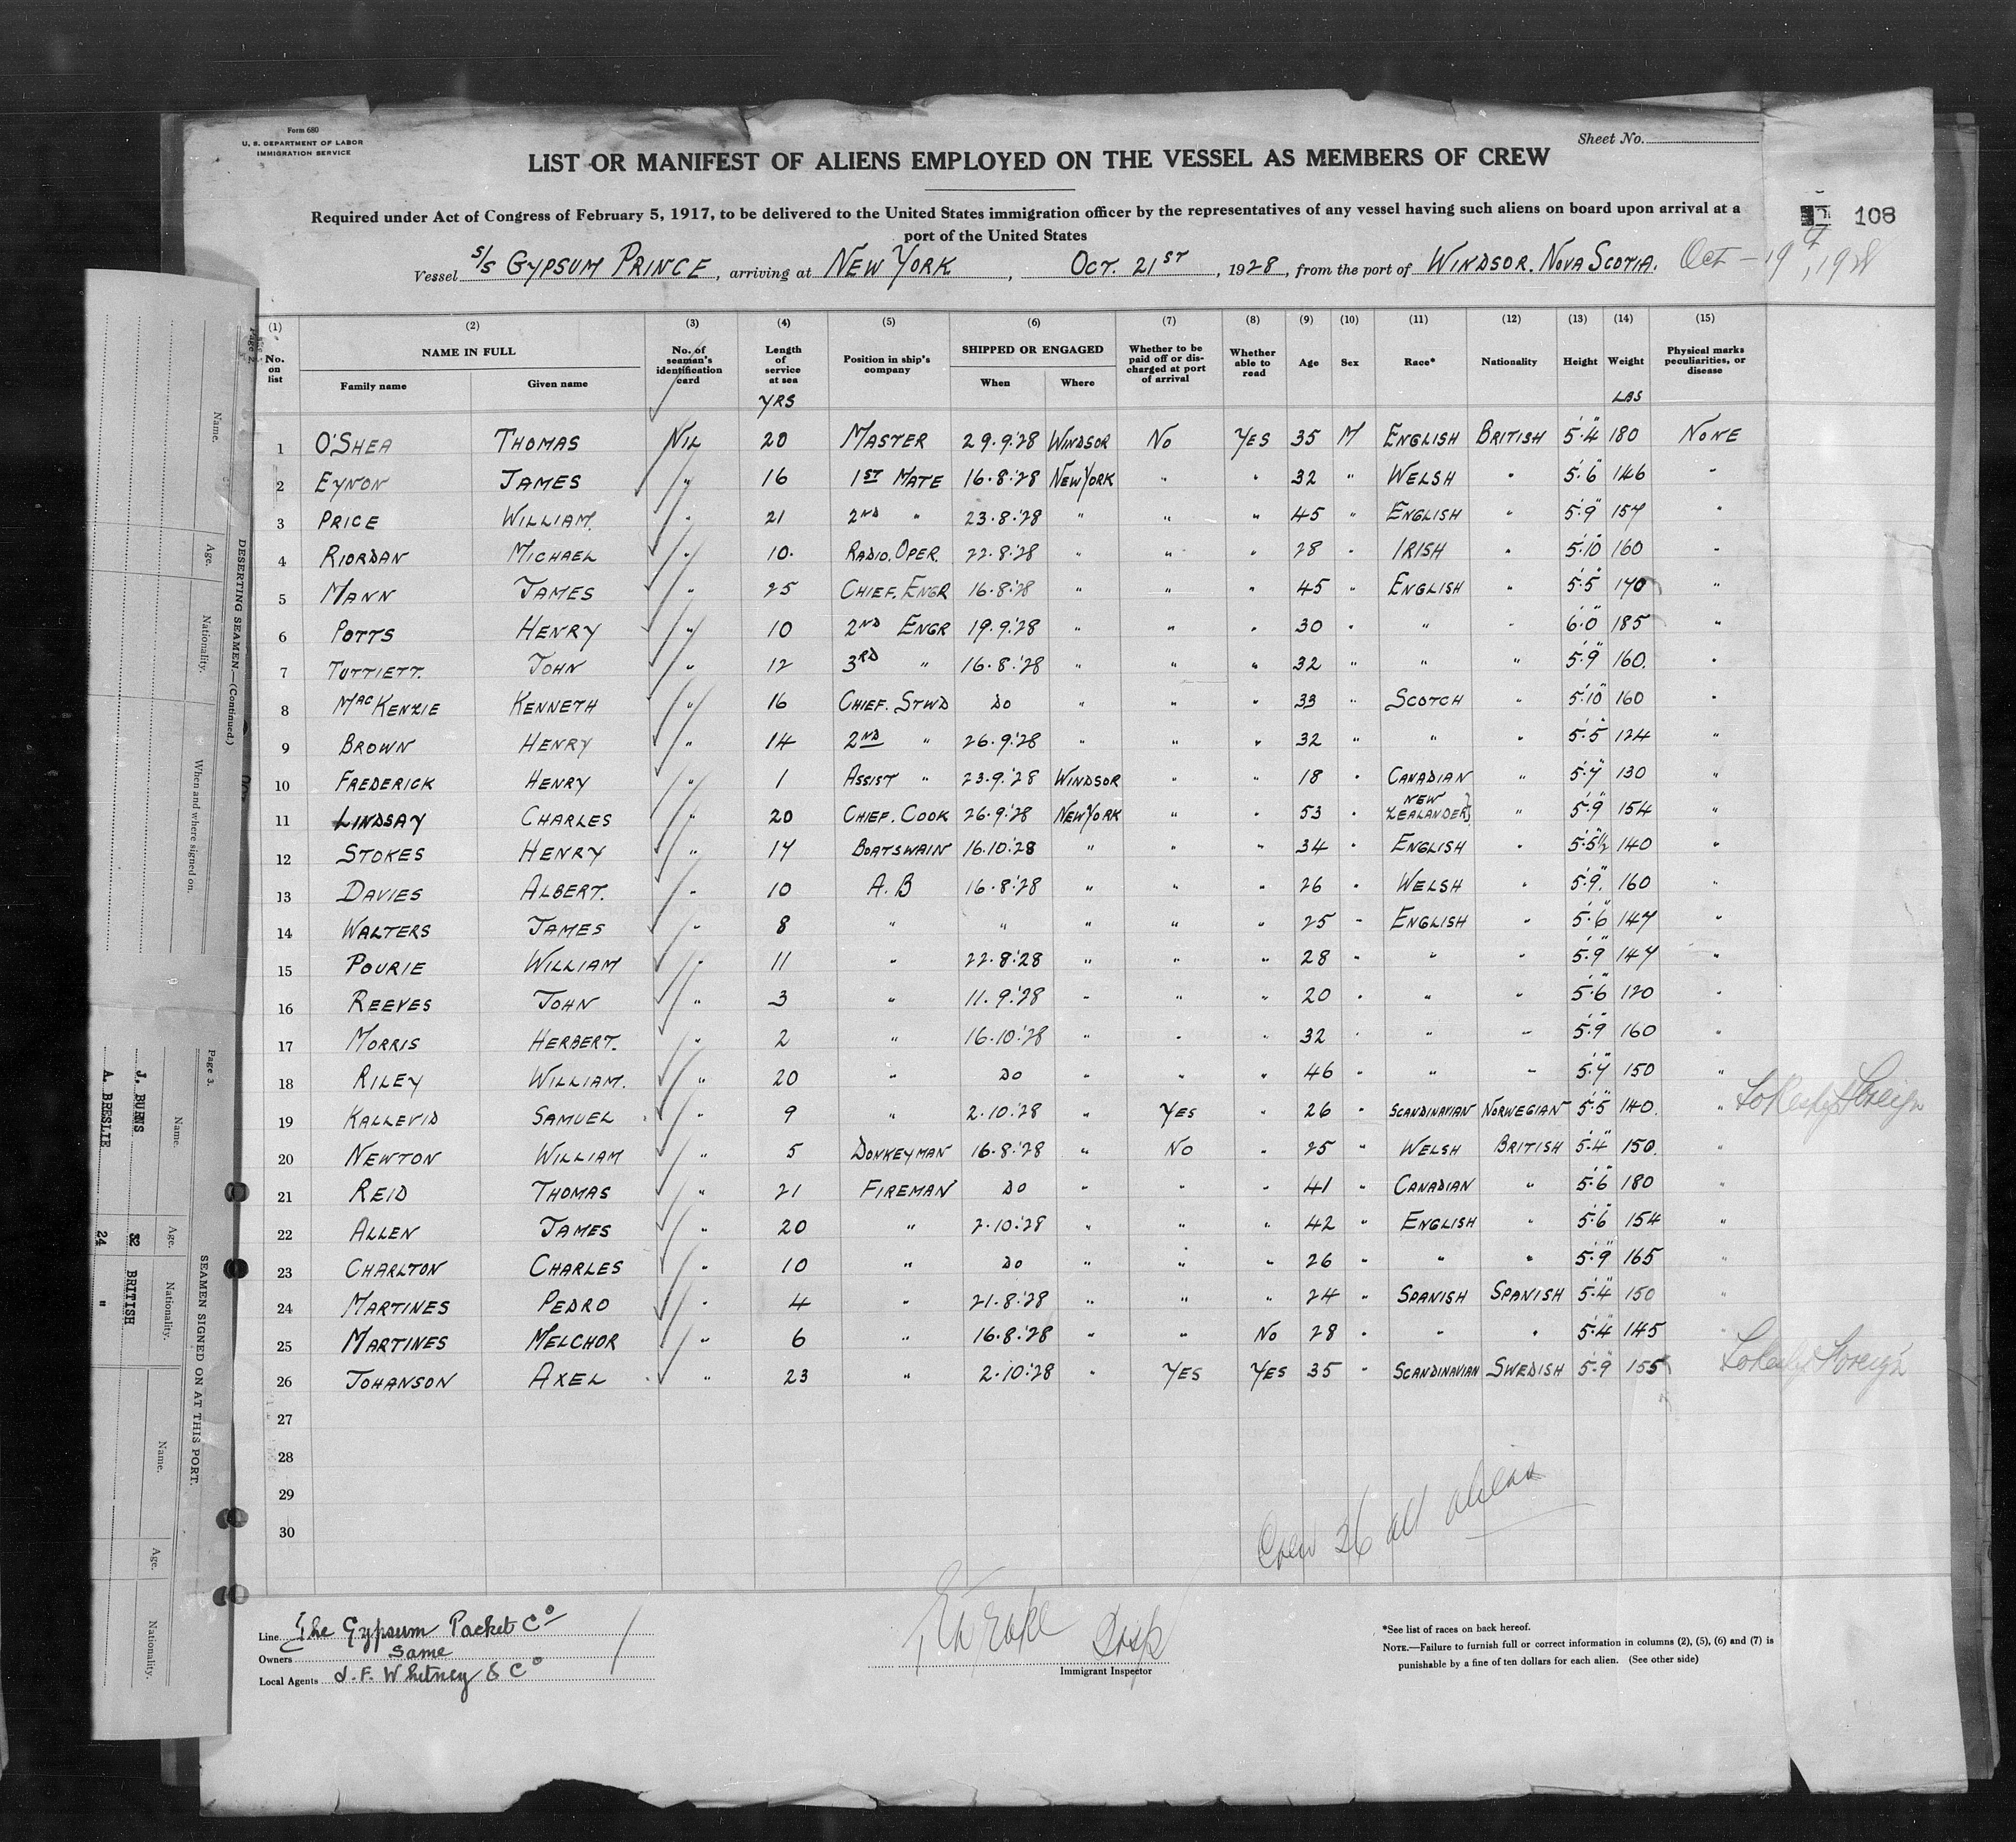 Form 680
U. S. DEPARTMENT OF LABOR
IMMIGRATION SERVICE
Sheet No.
LIST OR MANIFEST OF ALIENS EMPLOYED ON THE VESSEL AS MEMBERS OF CREW
Required under Act of Congress of February 5, 1917, to be delivered to the United States immigration officer by the representatives of any vessel having such aliens on board upon arrival at a
port of the United States
108
Vessel S/S GYPSUM PRINCE, arriving at NEW YORK, OCT. 21ST, 1928, from the port of WINDSOR. NOVA SCOTIA. Oct - 19th, 1928
(1) (2) (3) (4) (5) (6) (7) (8) (9) (10) (11) (12) (13) (14) (15)
No. on list NAME IN FULL Family name Given name No. of seaman's identification card Length of service at sea Position in ship's company SHIPPED OR ENGAGED When Where Whether to be paid off or discharged at port of arrival Whether able to read Age Sex Race* Nationality Height Weight Physical marks peculiarities, or disease
YRS LBS
1 O'SHEA THOMAS NIL 20 MASTER 29.9.'28 WINDSOR NO YES 35 M ENGLISH BRITISH 5'.4" 180 NONE
2 EYNON JAMES " 16 1ST MATE 16.8.'28 NEW YORK " " 32 " WELSH " 5'.6" 146 "
3 PRICE WILLIAM. " 21 2ND " 23.8.'28 " " " 45 " ENGLISH " 5'.9" 157 "
4 RIORDAN MICHAEL " 10. RADIO. OPER. 22.8.'28 " " " 28 " IRISH " 5'.10" 160 "
5 MANN JAMES " 25 CHIEF. ENGR 16.8.'28 " " " 45 " ENGLISH " 5'.5" 170 "
6 POTTS HENRY " 10 2ND ENGR 19.9.'28 " " " 30 " " " 6'.0" 185 "
7 TUTTIETT. JOHN " 12 3RD " 16.8.'28 " " " 32 " " " 5'.9" 160. "
8 MACKENZIE KENNETH " 16 CHIEF. STWD DO " " " 33 " SCOTCH " 5'.10" 160 "
9 BROWN HENRY " 14 2ND " 26.9.'28 " " " 32 " " " 5'.5" 124 "
10 FREDERICK HENRY " 1 ASSIST " 23.9.'28 WINDSOR " " 18 " CANADIAN " 5'.7" 130 "
11 LINDSAY CHARLES " 20 CHIEF. COOK 26.9.'28 NEW YORK " " 53 " NEW ZEALANDER} " 5'.9" 154 "
12 STOKES HENRY " 17 BOATSWAIN 16.10.'28 " " " 34 " ENGLISH " 5'.5½" 140 "
13 DAVIES ALBERT. " 10 A. B 16.8.'28 " " " 26 " WELSH " 5'.9". 160 "
14 WALTERS JAMES " 8 " " " " " 25 " ENGLISH " 5'.6" 147 "
15 POURIE WILLIAM " 11 " 22.8.'28 " " " 28 " " " 5'.9" 147 "
16 REEVES JOHN " 3 " 11.9.'28 " " " 20 " " " 5'.6" 120 "
17 MORRIS HERBERT. " 2 " 16.10.'28 " " " 32 " " " 5'.9" 160 "
18 RILEY WILLIAM. " 20 " DO " " " 46 " " " 5'.7" 150 "
19 KALLEVID SAMUEL " 9 " 2.10.'28 " YES " 26 " SCANDINAVIAN NORWEGIAN 5'.5" 140. " To Reship Foreign
20 NEWTON WILLIAM " 5 DONKEYMAN 16.8.'28 " NO " 25 " WELSH BRITISH 5'.4" 150. "
21 REID THOMAS " 21 FIREMAN DO " " " 41 " CANADIAN " 5'.6" 180 "
22 ALLEN JAMES " 20 " 2.10.'28 " " " 42 " ENGLISH " 5'.6" 154 "
23 CHARLTON CHARLES " 10 " DO " " " 26 " " " 5'.9" 165 "
24 MARTINES PEDRO " 4 " 21.8.'28 " " " 24 " SPANISH SPANISH 5'.4" 150 "
25 MARTINES MELCHOR " 6 " 16.8.'28 " " NO 28 " " " 5'.4" 145 "
26 JOHANSON AXEL " 23 " 2.10.'28 " YES YES 35 " SCANDINAVIAN SWEDISH 5'.9" 155 To Reship Foreign
27
28
29
30
Crew 26 all aliens
Line The Gypsum Packet Co
Owners Same
Local Agents J. F. Whitney & Co
Insp
Immigrant Inspector
*See list of races on back hereof.
NOTE.—Failure to furnish full or correct information in columns (2), (5), (6) and (7) is
punishable by a fine of ten dollars for each alien. (See other side)
Page 2.
DESERTING SEAMEN.—(Continued.)
Name. Age. Nationality. When and where signed on.
Page 3.
SEAMEN SIGNED ON AT THIS PORT.
Name. Age. Nationality. Name. Age. Nationality.
J. BURNS 32 BRITISH
A. BRESLIE 24 "